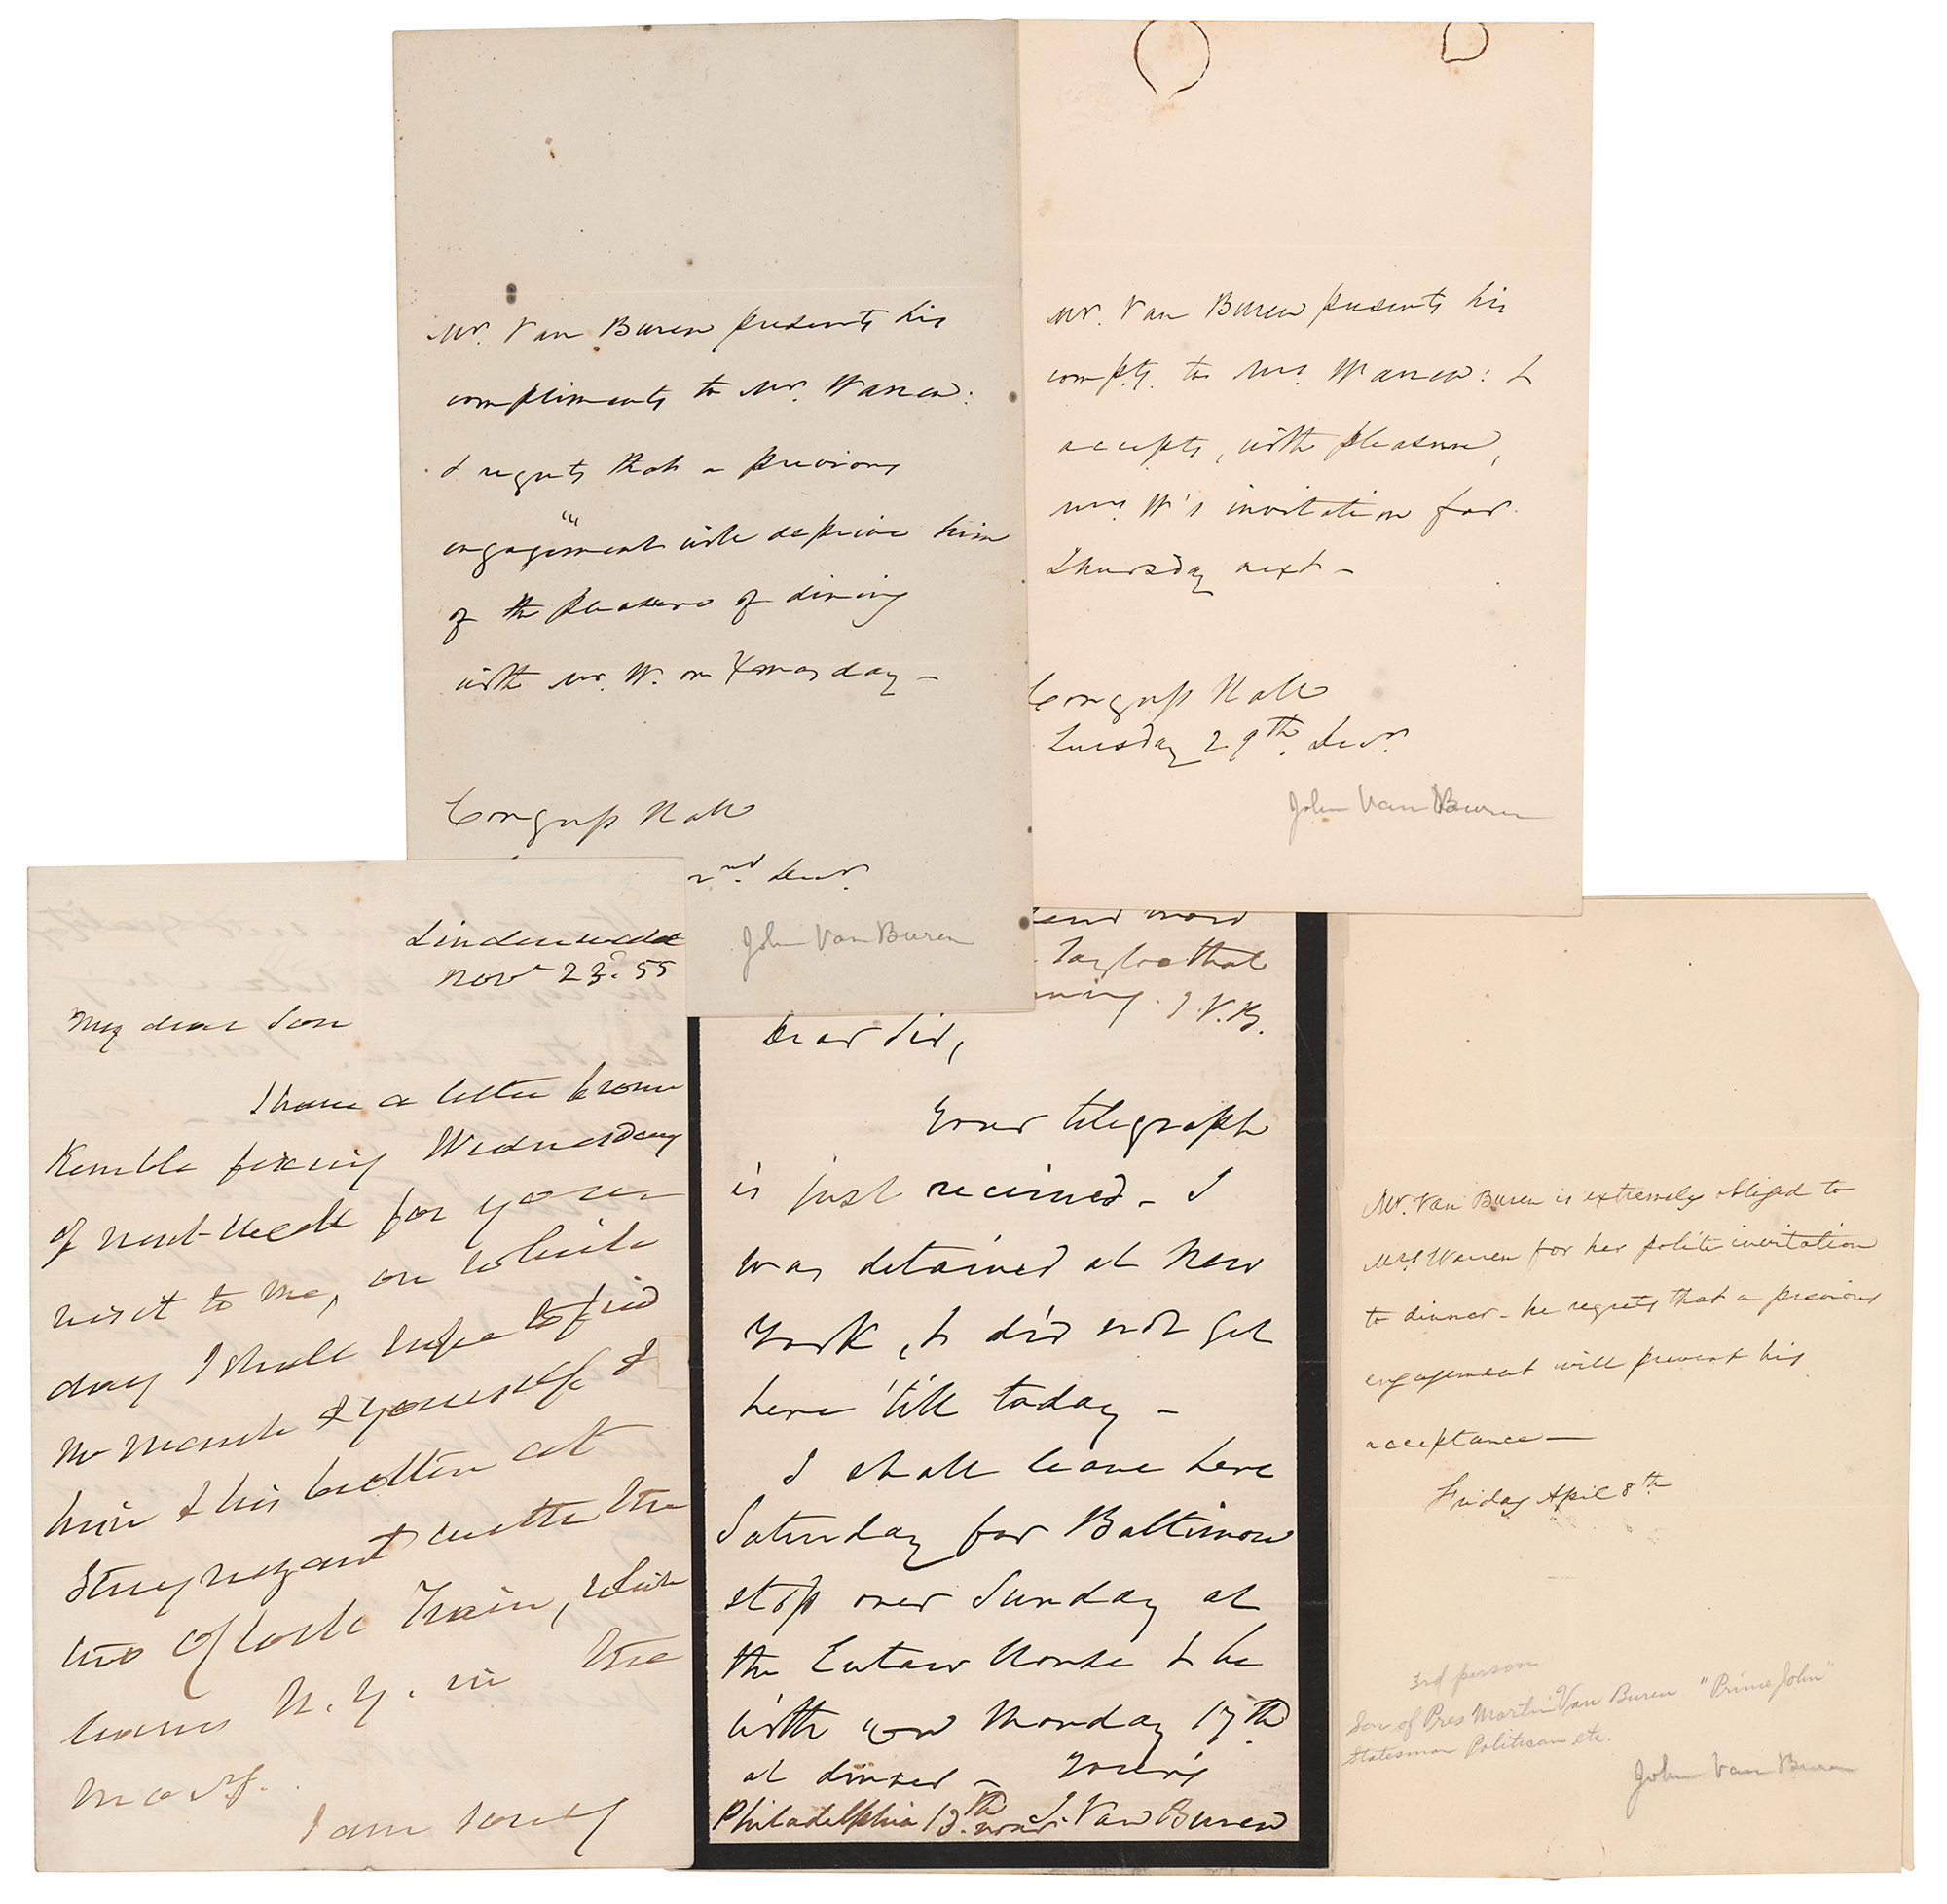 Mr. Van Buren presents his
compliments to Mr. Warren:
& regrets that a previous
engagement will deprive him
of the pleasure of dining
with Mr. W. on Xmas day –
Congress Hall
2nd. Decr.
John Van Buren
Mr. Van Buren presents his
compts. to Mrs. Warren: &
accepts, with pleasure,
Mrs. W's invitation for
Thursday next –
Congress Hall
Tuesday 29th. Decr.
John Van Buren
Lindenwald
Nov 23. 55
My dear Son
I have a letter from
Kemble fixing Wednesday
of next week for your
visit to me, on which
day I shall hope to find
& yourself &
him & his brother at
Stuyvesant with the
two O'clock Train, which
leaves N. Y. in the
I am sorry
send word
Tayloe that
J. V. B.
Dear Sir,
Your telegraph
is just received – I
was detained at New
York, & did not get
here 'till today –
I shall leave here
Saturday for Baltimore
stop over Sunday at
the Eutaw House & be
with you Monday 17th
at dinner – Yours
Philadelphia 13th. J. Van Buren
Mr. Van Buren is extremely obliged to
Mrs Warren for her polite invitation
to dinner – he regrets that a previous
engagement will prevent his
acceptance —
Friday April 8th
3rd person
Son of Pres Martin Van Buren "Prince John"
Statesman Politican etc.
John Van Buren